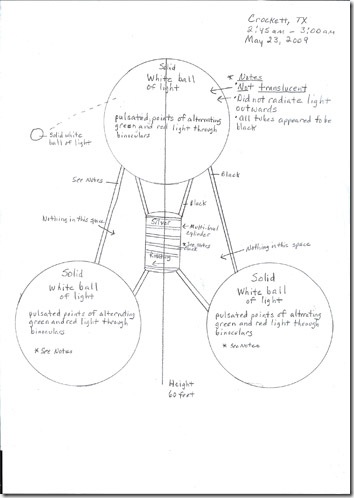 Crockett, TX
2:45 am - 3:00 am
May 23, 2009
Solid
White ball
of light
pulsated points of alternating
green and red light through
binoculars
* Notes
• Not translucent
• Did not radiate light
outwards
• All tubes appeared to be
black
Solid white
ball of light
See Notes
Black
Black
Nothing in this space
Silver
Multi-hued
cylinder
*See notes
Black
Rotating
Nothing in this space
Solid
White ball
of light
pulsated points of alternating
green and red light through
binoculars
* See Notes
Solid
White ball
of light
pulsated points of alternating
green and red light through
binoculars
* See Notes
Height
60 feet